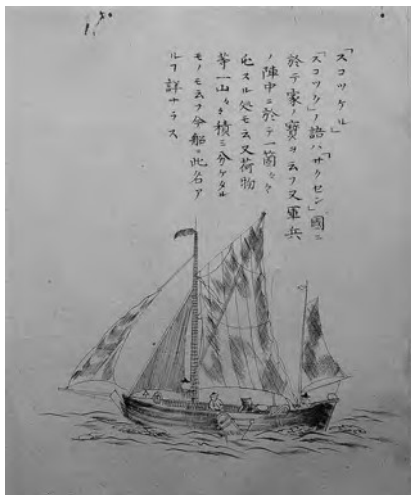 「スコツケル」
「スコフク」ノ語ハ「サクセン」國ニ
於テ家ノ寳ヲ云フ又軍兵
ノ陣中ニ於テ一箇々々
屯スル処モ云又荷物
等一山々々積ミ分ケタル
モノモ云フ今船ニ此名ア
ルヿ詳ナラス